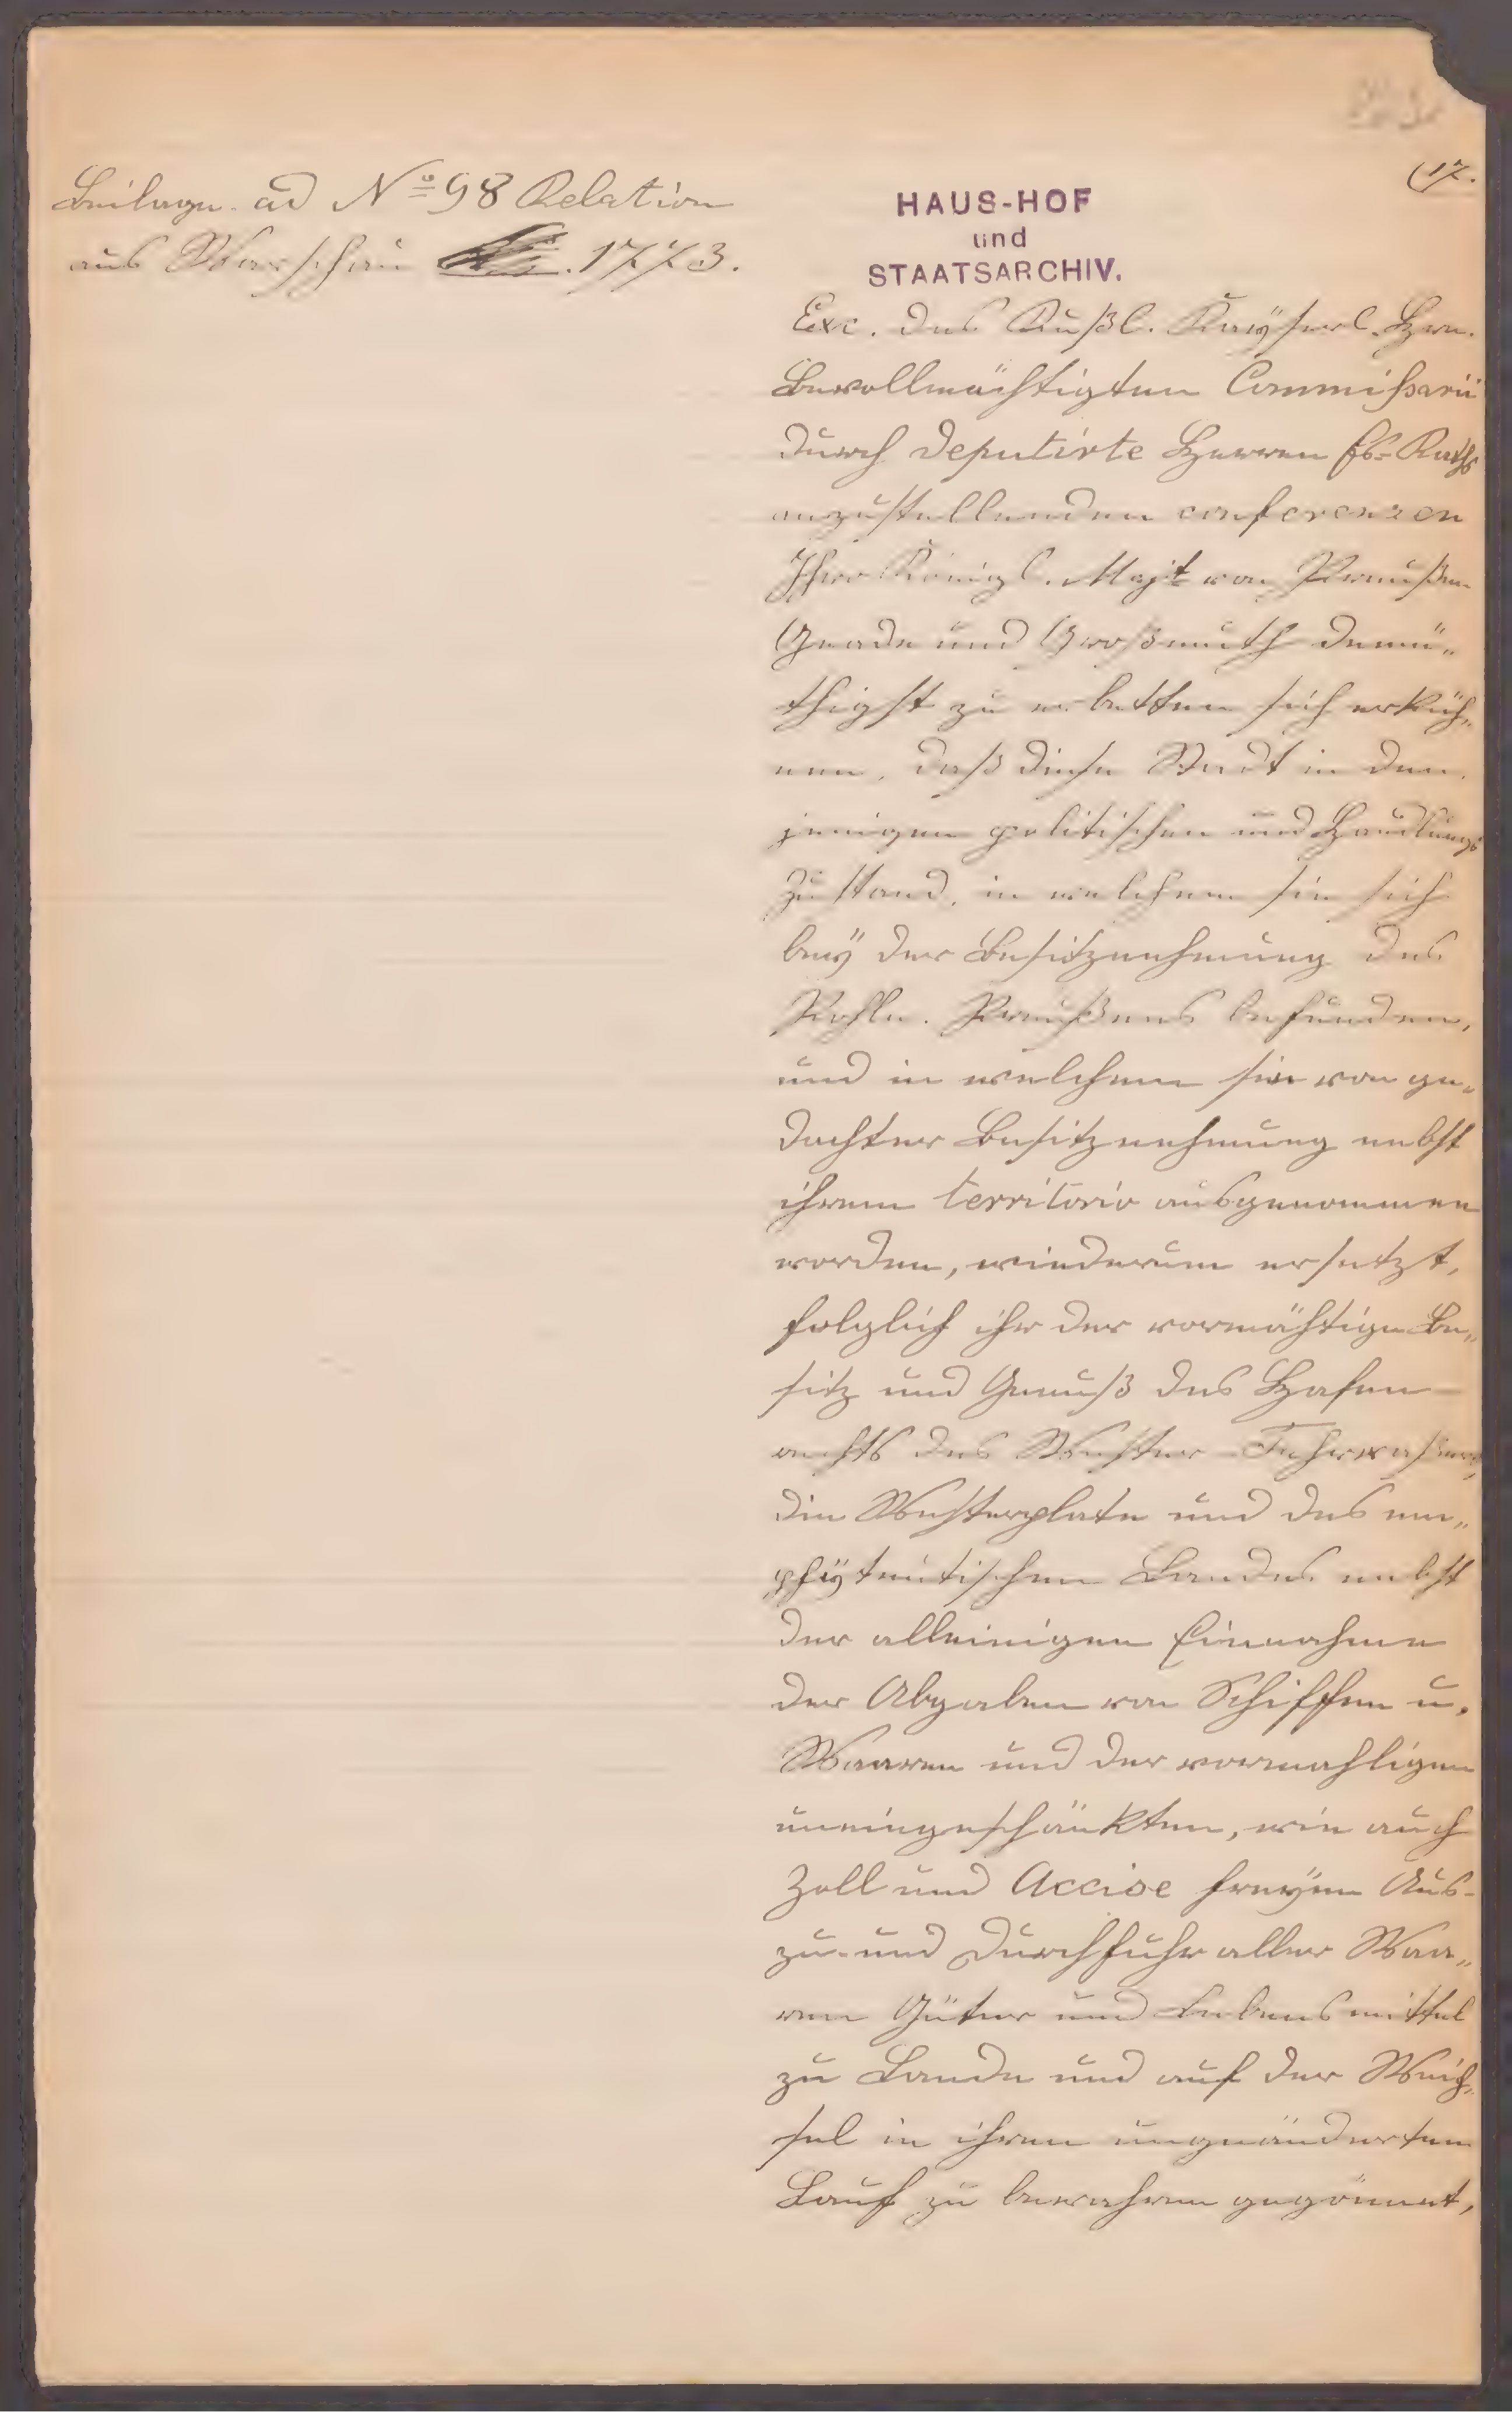 17.
Beilage ad No 98 Relation
aus Warschau 1773.
HAUS-HOF
und
STAATSARCHIV.
Exc. des Rußl. Kaÿserl. Hrn.
Bevollmächtigten Commißarii
durch Deputirte Herren Es. Raths
anzustellenden conferenzen
Ihro Königl. Majt von Preußen
Gnade und Großmuth demü„
thigst zu erbitten sich erküh„
nen, daß diese Stadt in den
jenigen politischen und Handlungs
Zustand, in welchem sie sich
beÿ der Besitznehmung des
Pohln. Preußens befunden,
und in welchem sie von ge„
dachter Besitznehmung nebst
ihrem territorio ausgenommen
worden, wiederum ersetzt,
folglich ihr der vormähtige Be„
sitz und Genuß des Hafen-
rechts des Wester-Fahrwaßers,
die Westerplate und des em„
phÿteutischen Landes nebst
der alleinigen Einnahme
der Abgaben von Schiffen u.
Waaren und der vormahligen
uneingeschänkten, wie auch
Zoll und Accise freÿen Aus-
zu- und Durchfuhr aller Waa„
ren Güter und Lebensmittel
zu Lande und auf der Weich„
sel in ihren ungeänderten
Lauf zu bewahren gegönnet,